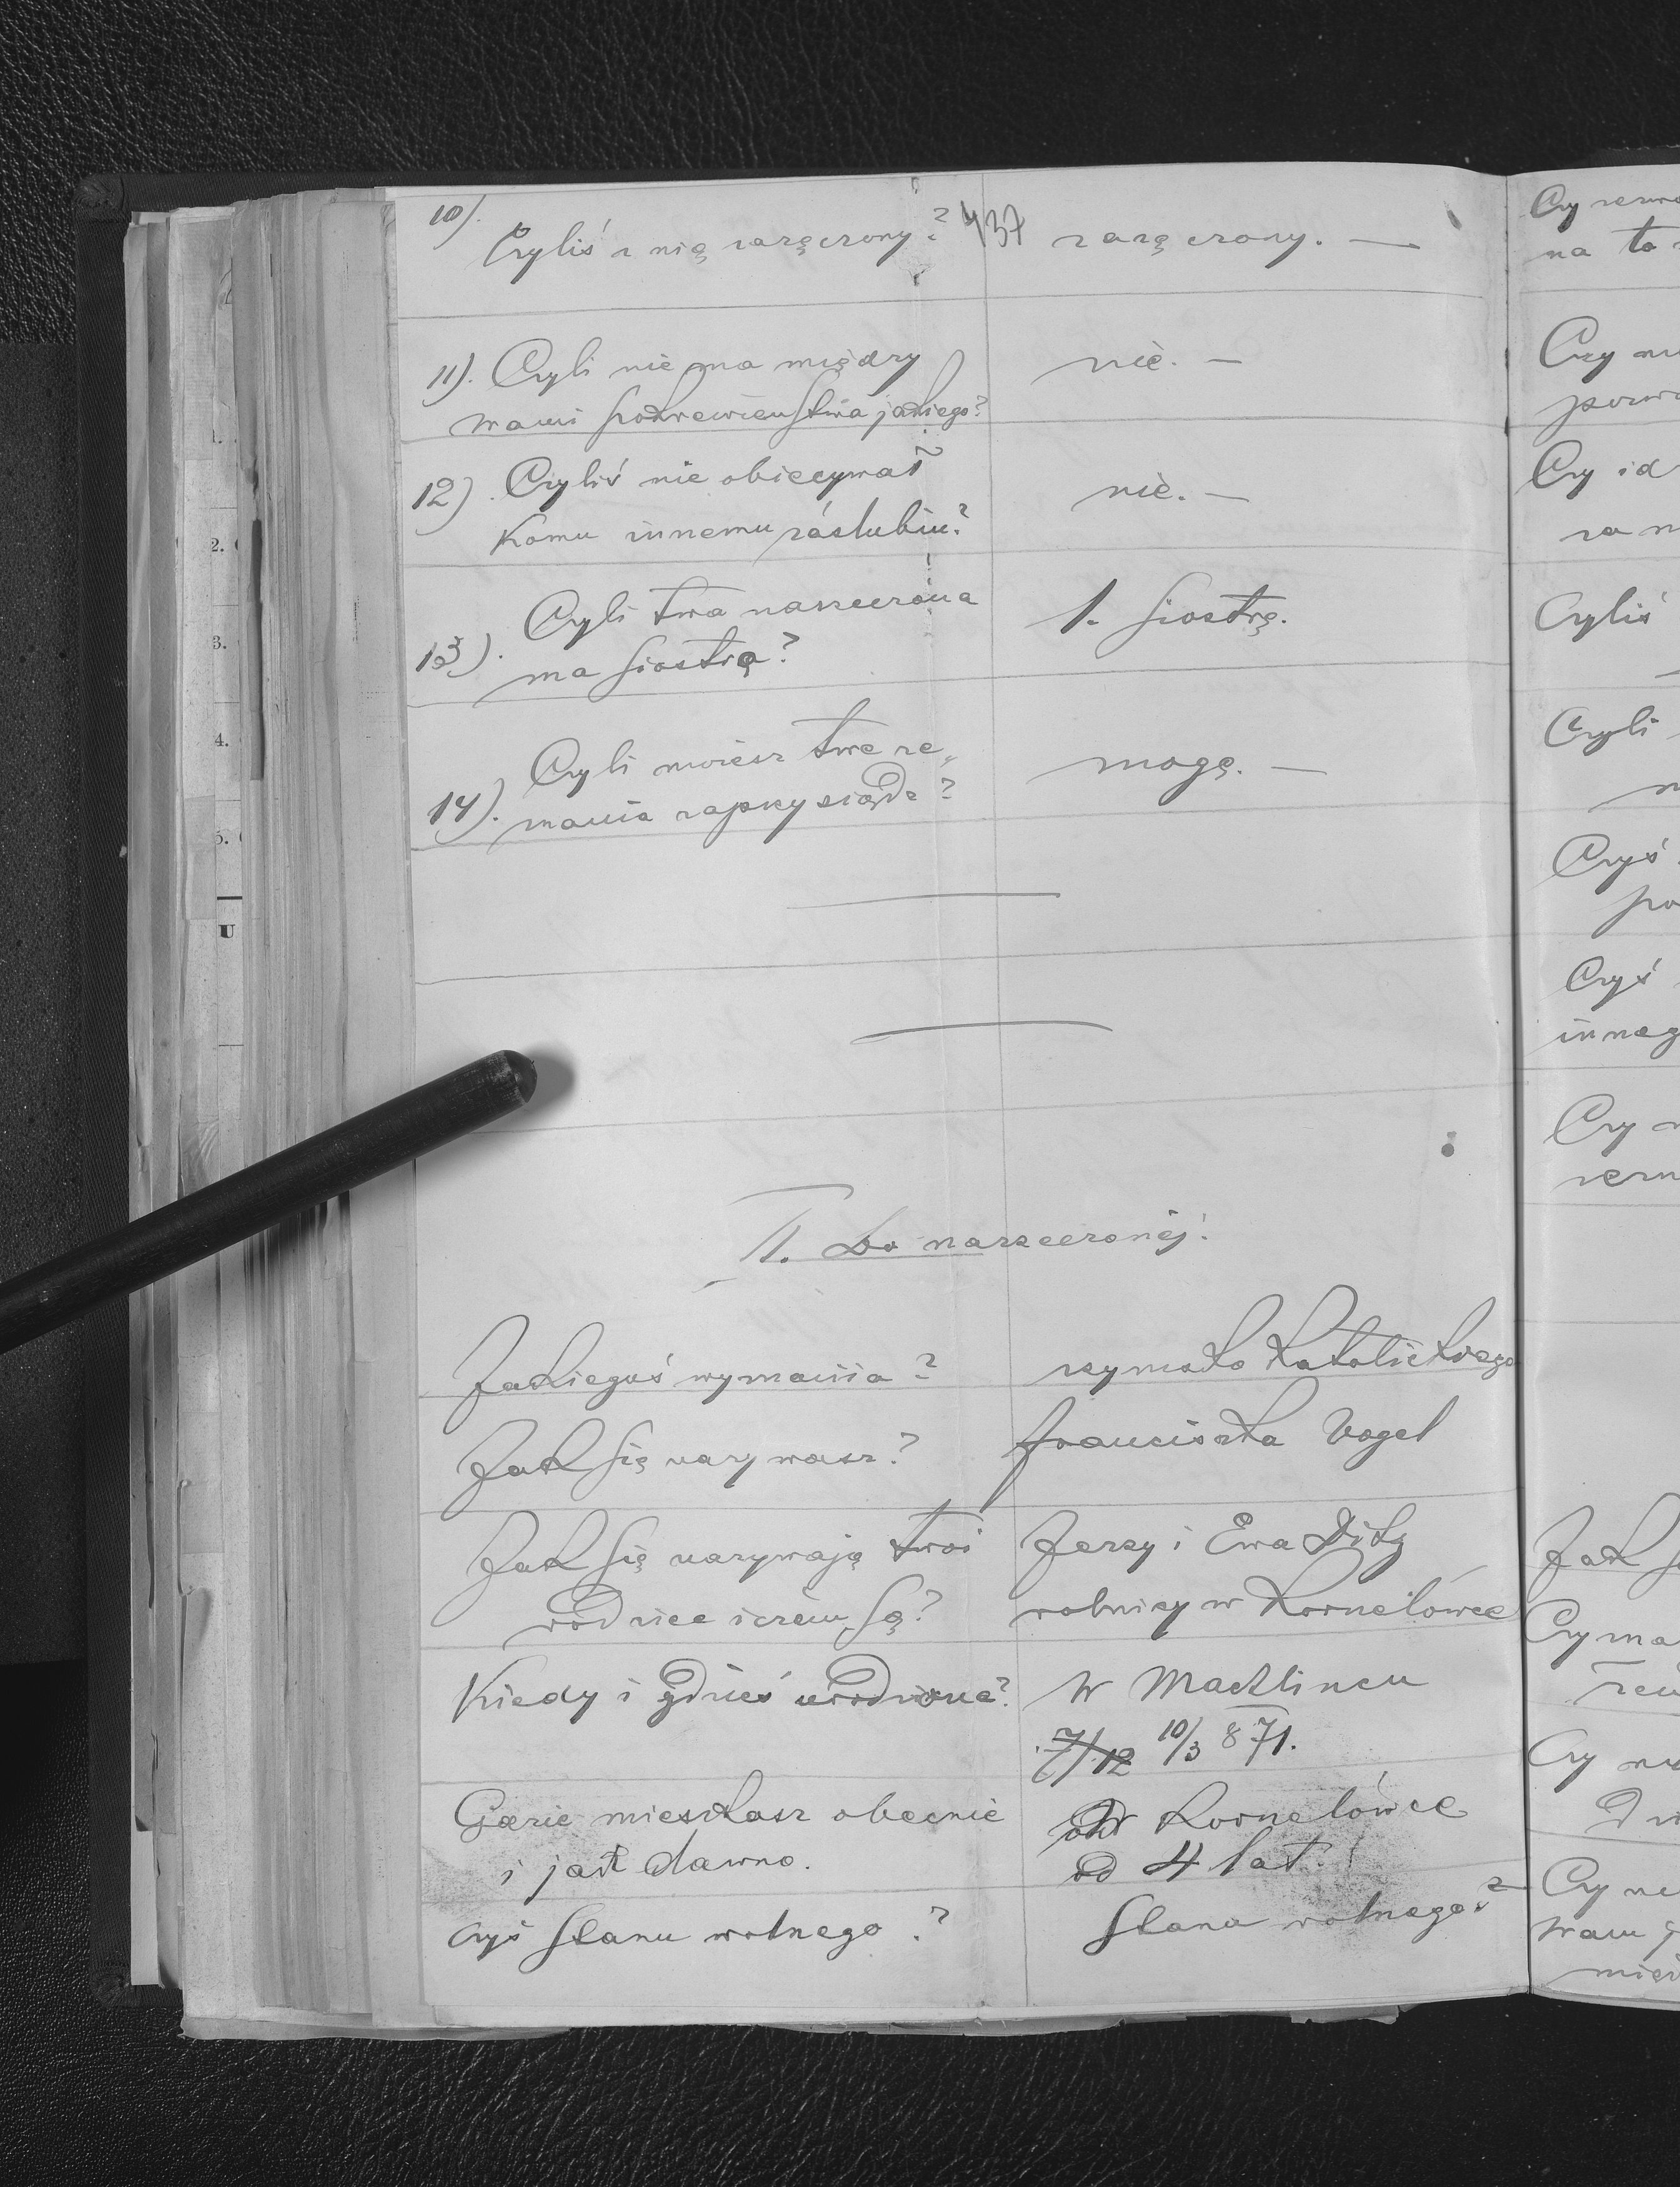 10).
Czyliś z nią zaręczony? 437 zaręczony. —
11). Czyli nie ma między nie. —
wami pokrewieństwa jakiego?
12). Czyliś nie obiecywał nie. —
Komu innemu záślubin?
Czyli twa narzeczona 1. siostrę.
13). ma siostrę?
Czyli możesz twe ze„ mogę. —
14). mania zaprzysiądz?
II. Do narzeczonéj!
Jakiegoś wymania? rzymsko katolickiego
Jak się nazywasz? Franciszka Vogel
Jak się nazywają twoi Jerzy i Ewa Ditz
rodzice i czém są? rolnicy w Kornelówce
Kiedy i gdzieś urodzona? W Macklincu
7/12 10/3 871.
Gdzie mieszkasz obecnie W Kornelówce
i jak dawno. od 4 lat!
czyś stanu wolnego? stanu wolnego
Czy
na to
Czy
Czy
Czyliś
Czyli
Czyś
po
Czyś
inneg
Czy
Jak
Czy ma
Czy
Czy
Wam